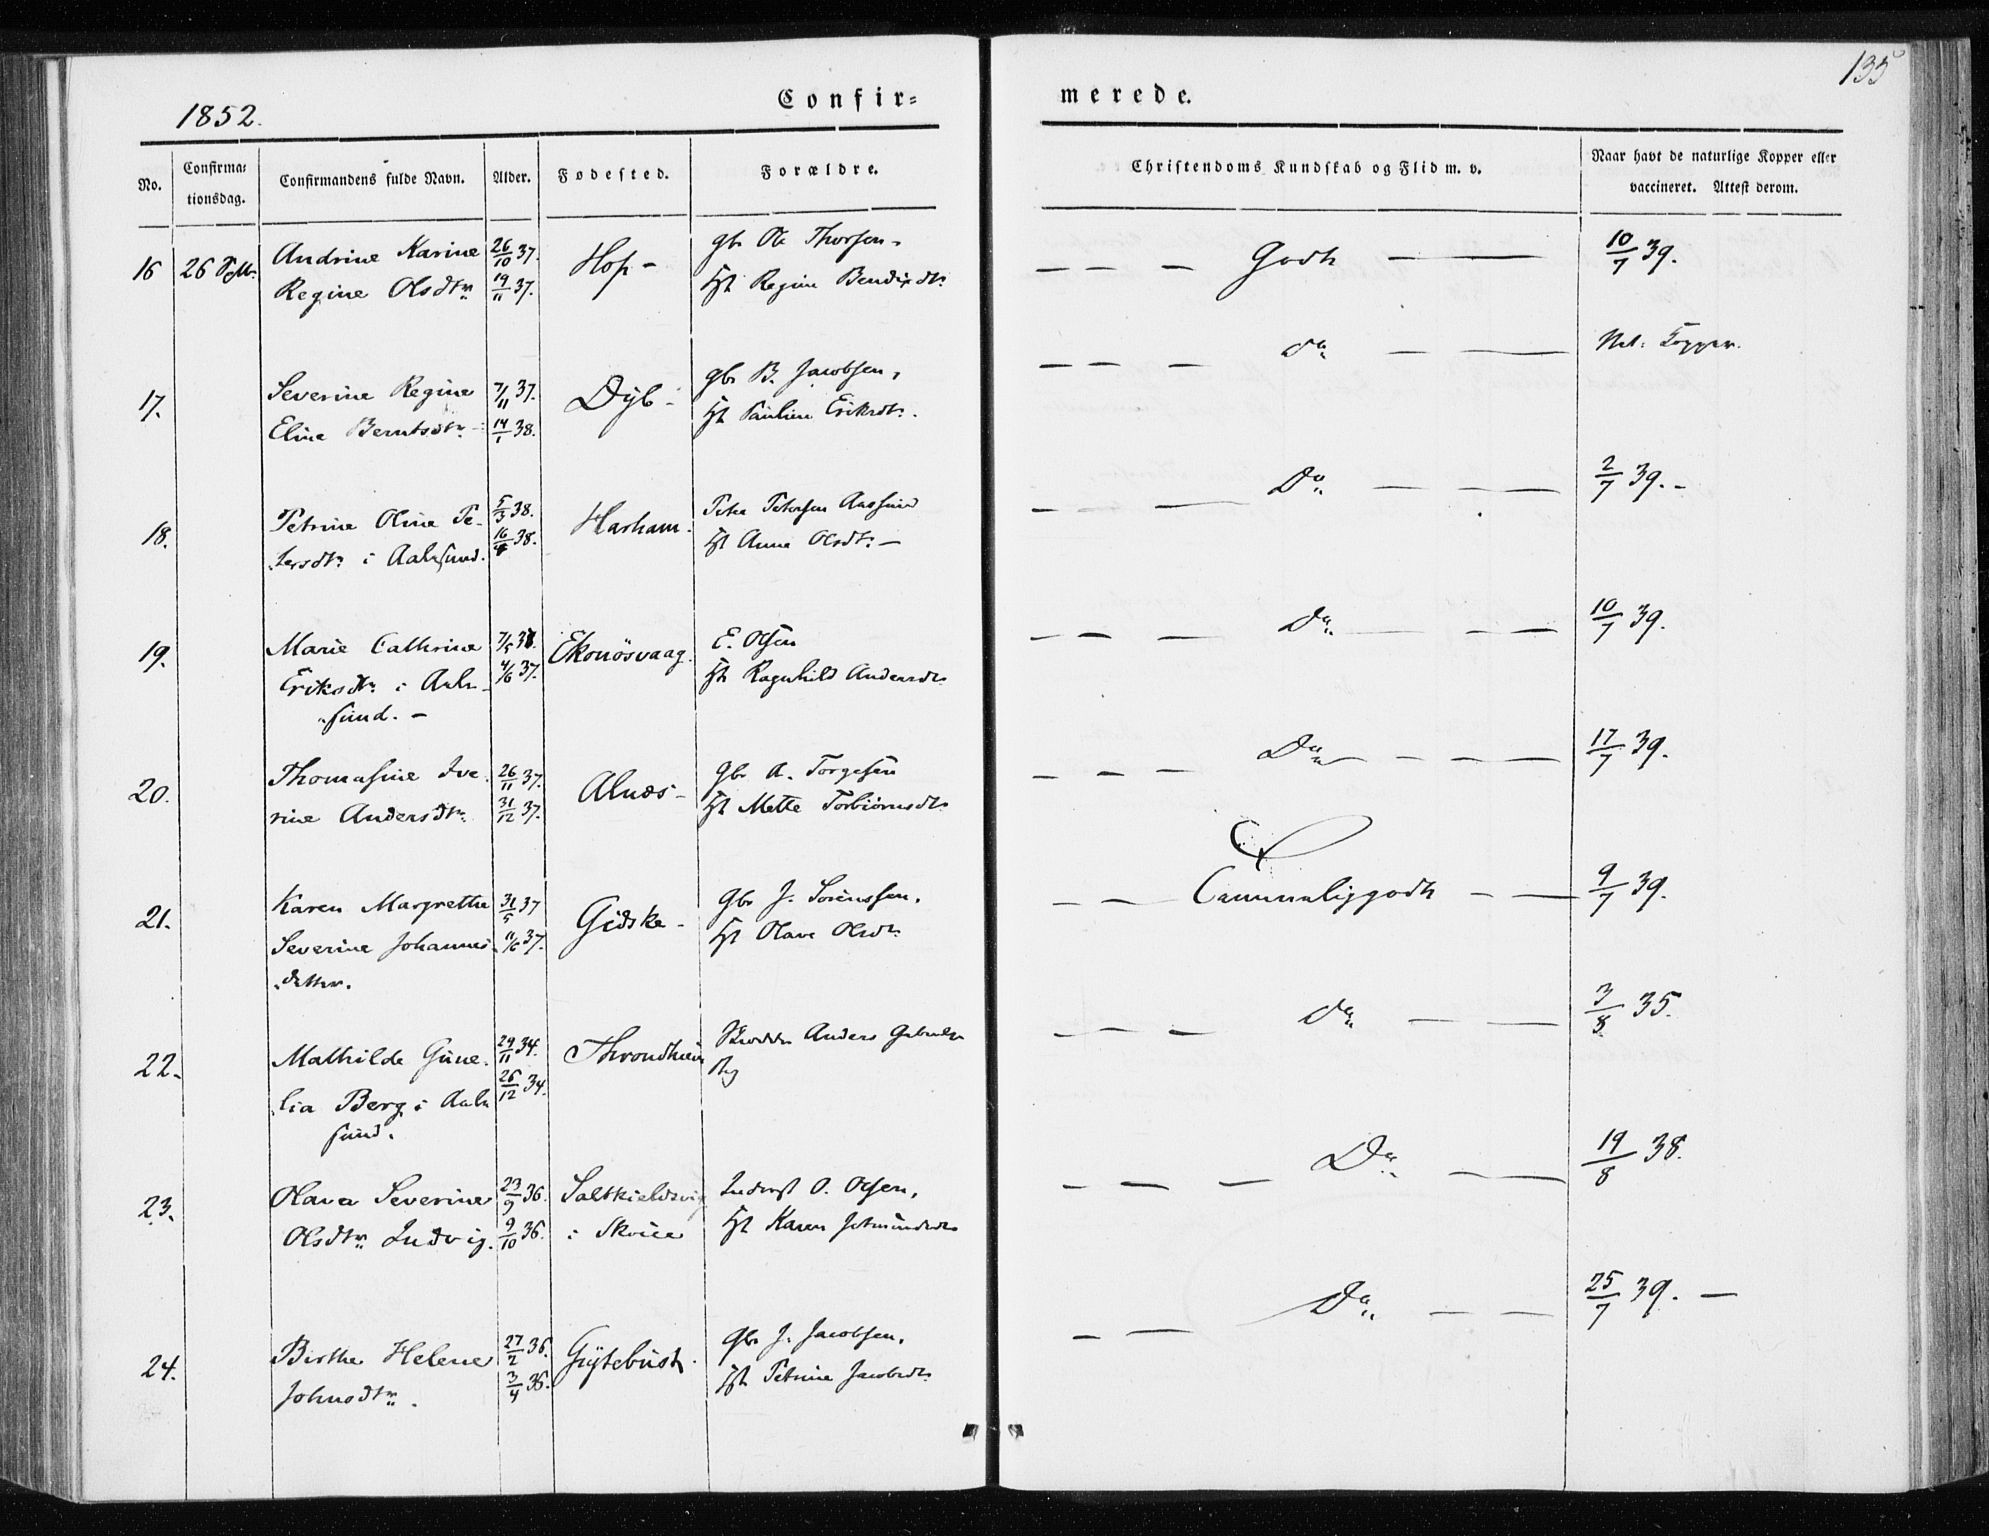 135
1852.
Confir=
merede.
No.
Confirma=
tionsdag.
Confirmandens fulde Navn.
Alder.
Fødested.
Forældre.
Christendoms Kundskab og Flid m. v.
Naar havt de naturlige Kopper eller
vaccineret. Attest derom.
16 26 Andrine Karine 26/10 37. Hof - gbr Ole Thorsen - Godt 10/7 39.
Regine Olsdtr 19/11 37. Regine Bendixdtr
17. Severine Regine 7/11 37. Dyb - gbr B. Jacobsen, do Nat. Kopper.
Eline Berntsdtr - 14/1 38. Pauline Eriksdtr.
18. Petrine Oline Pe- 5/3 38. Harham. Peter Petersen Do 2/7 39. -
tersdtr i Aalesund. 16/4 38. Anne Olsdtr -
19. Marie Cathrine 7/5 37. Ekonösvaag. E. Olsen Do 10/7 39.
Eriksdtr i Aale- 4/6 37. Ragnhild Andersdtr
sund. -
20. Thomasine Ive- 26/11 37. Alnæs - gbr A. Torgesen Do 17/7 39.
rine Andersdtr 31/12 37. Mette Torbiörnsdtr
21. Karen Margrethe 31/5 37 Gidske - gbr J. Sörenssen, Temmeliggodt 9/7 39.
Severine Johannes- 11/6 37. Olave Olsdtr
datter.
22. Mathilde Gune- 29/11 34. Throndhiem Anders do 3/8 35.
lia Berg i Aale 26/12 34.
sund.
23. Olava Severine 23/9 36. Saltkieldsvig O. Olsen, Do 19/8 38.
Olsdtr Ludvig. 9/10 36. i Skoue Karen
24. Birthe Helene 27/2 36. Gÿtebust. gbr J. Jacobsen, Do 25/7 39. -
Johnsdtr. 3/4 36. Petrine Jacobsdtr